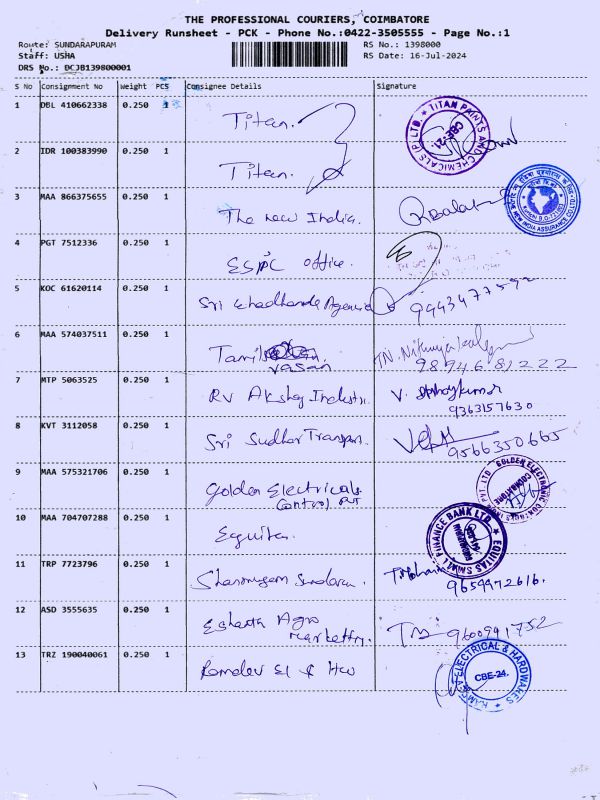 THE PROFESSIONAL COURIERS, COIMBATORE
Delivery Runsheet - PCK - Phone No.:0422-3505555 - Page No.:1
Route: SUNDARAPURAM RS No.: 1398000
Staff: USHA RS Date: 16-Jul-2024
DRS No.: DCJB139800001
S No Consignment No Weight PCS Consignee Details Signature
1 DBL 410662338 0.250 1 Titan. TITAN PAINTS AND CHEMICALS (P) LTD. CBE-21.
2 IDR 100383990 0.250 1 Titan.
3 MAA 866375655 0.250 1 The new India.
4 PGT 7512336 0.250 1 office.
5 KOC 61620114 0.250 1 Sri 9943477592
6 MAA 574037511 0.250 1 Tamil vasan
9874681222
7 MTP 5063525 0.250 1 RV Akshay V.
9363157630
8 KVT 3112058 0.250 1 Sri 9566350665
9 MAA 575321706 0.250 1 Golden Electricals
Control PVT GOLDEN ELECTRONIC CONTROLS PVT LTD COIMBATORE
10 MAA 704707288 0.250 1 Equitas EQUITAS SMALL FINANCE BANK LTD.
11 TRP 7723796 0.250 1 9659472616.
12 ASD 3555635 0.250 1 Agro
9600991752
13 TRZ 190040061 0.250 1 Ramdev El & Hw ELECTRICAL & HARDWARES CBE-24.